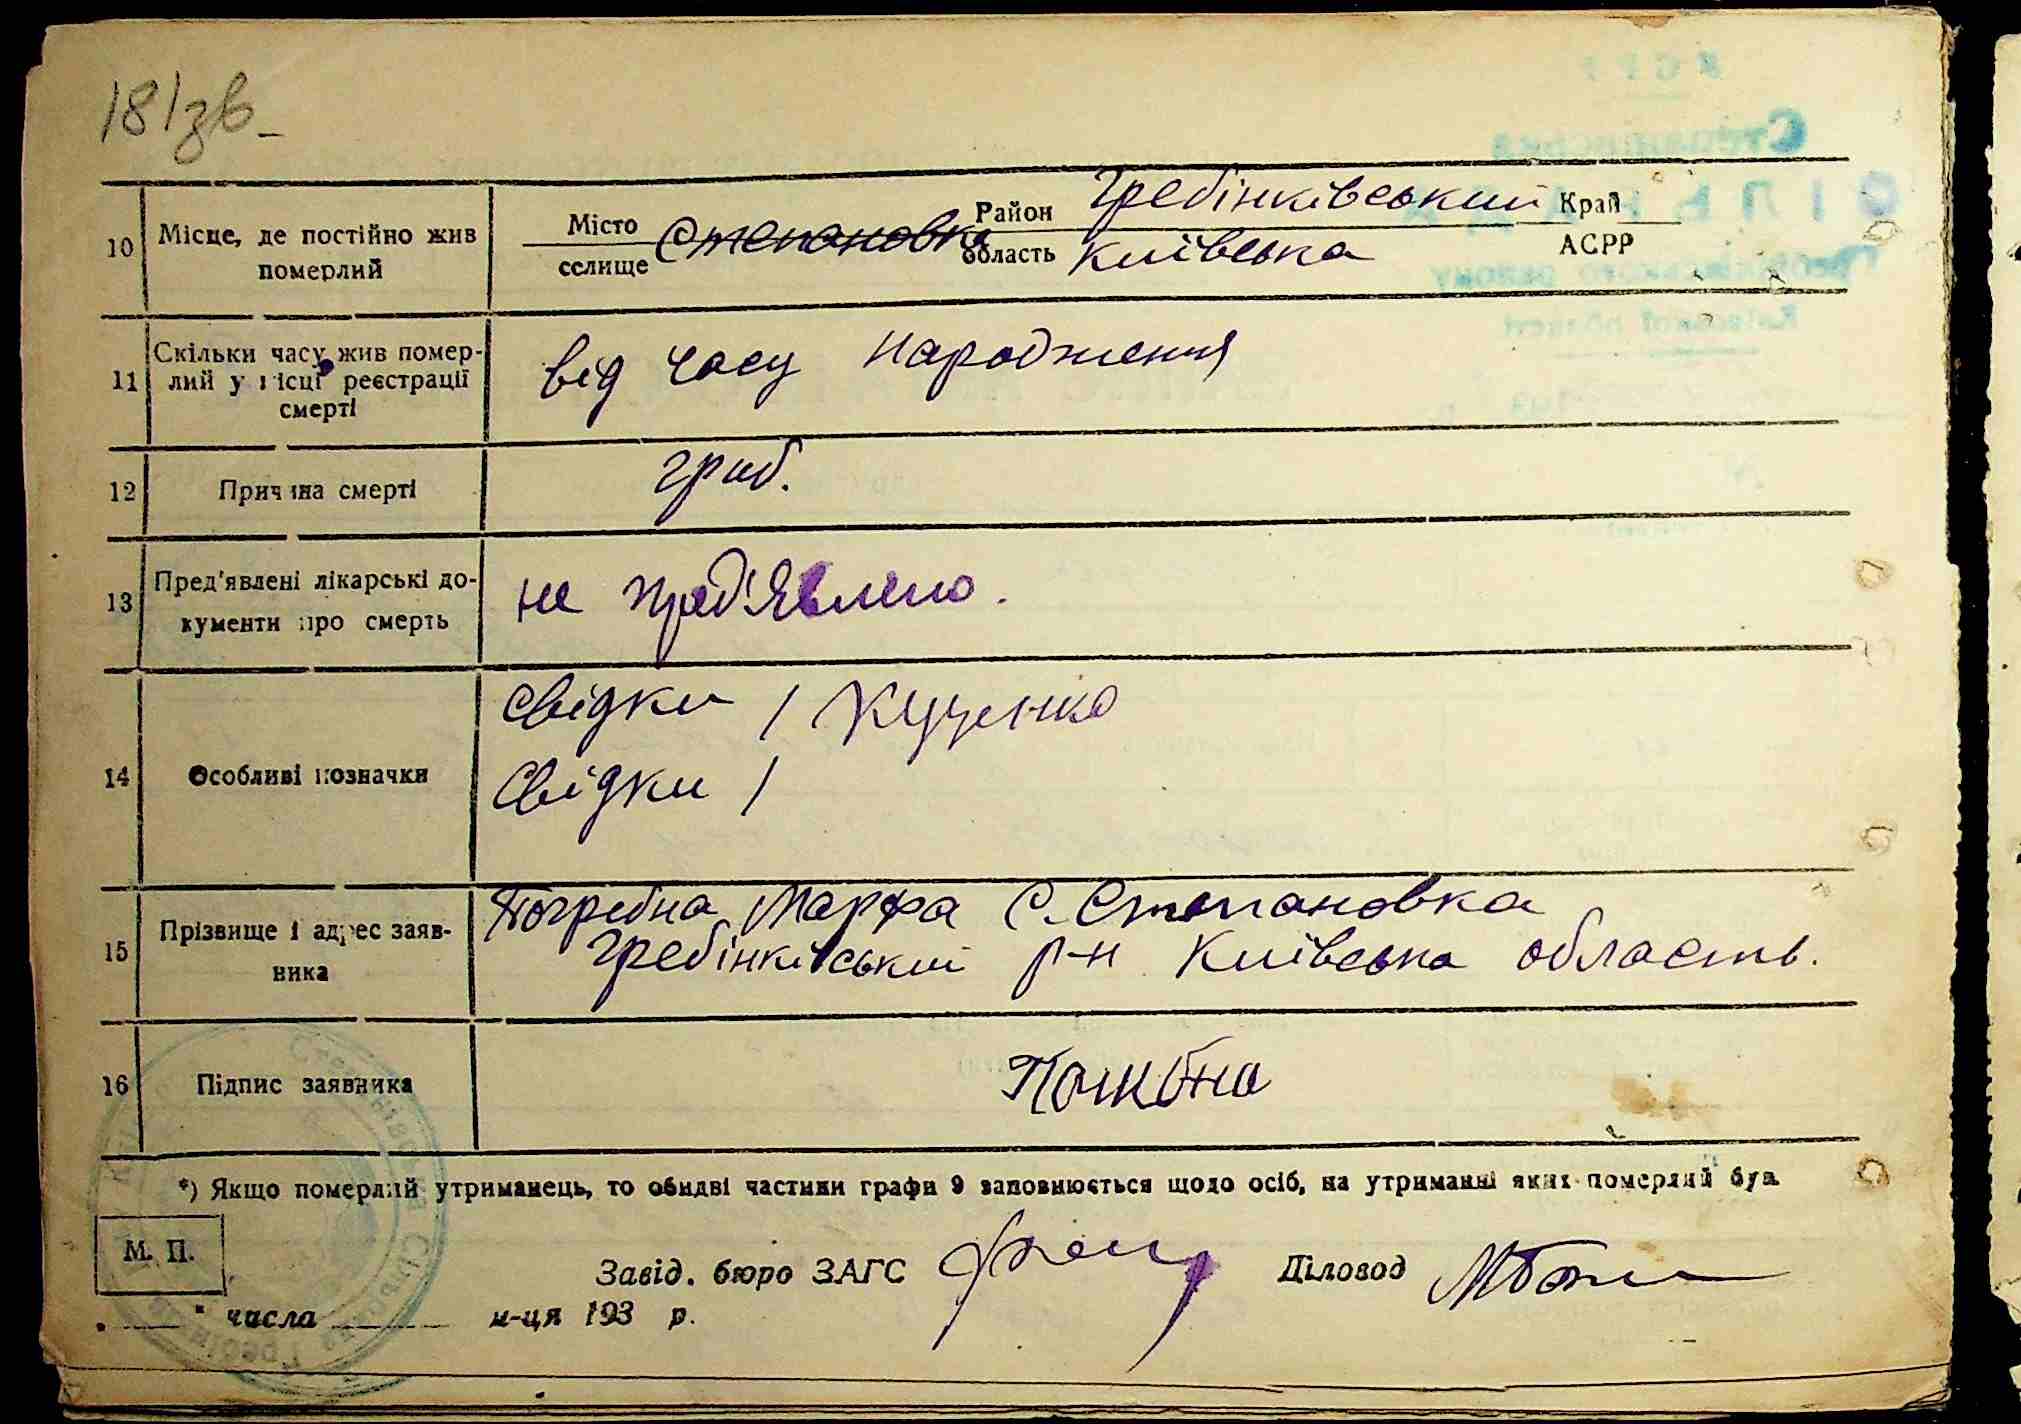 181зв
10 Місце, де постійно жив померлий
Місто селище Степановка Район Гребінківський Край
область Київська АСРР
11 Скільки часу жив помер-
лий у місці реєстрації
смерті
від часу народження
12 Причина смерті
грип.
13 Пред'явлені лікарські до-
кументи про смерть
не пред'явлено.
14 Особливі позначки
Свідки / Куценко
Свідки /
15 Прізвище і адрес заяв-
ника
Погребна Марфа С. Степановка
Гребінківський р-н Київська область.
16 Підпис заявника
*) Якщо померлий утриманець, то обидві частини графи 9 заповнюється щодо осіб, на утриманні яких померлий був
М. П.
Завід. бюро ЗАГС Діловод
" числа м-ця 193 р.